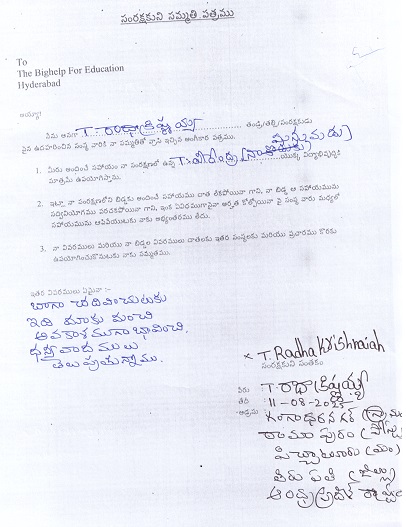 సంరక్షకుని సమ్మతి పత్రము
To
The Bighelp For Education
Hyderabad
అయ్యా!
నేను అనగా T. రాధాక్రిష్ణయ్య తండ్రి/తల్లి/సంరక్షకుడు
పైన ఉదహరించిన సంస్థ వారికి నా సమ్మతితో వ్రాసి ఇచ్చిన అంగీకార పత్రము.
1. మీరు అందించే సహాయం నా సంరక్షణలో ఉన్న T. వీరేంద్ర యొక్క విద్యాభివృద్ధికి
మాత్రమే ఉపయోగిస్తాను.
2. ఇట్లా నా సంరక్షణలోని బిడ్డకు అందించే సహాయము చాత లేకపోయినా గాని, నా బిడ్డ ఆ సహాయమును
సద్వినియోగము పరచకపోయినా గాని, ఇంక ఏవిధముగానైనా అర్హత కోల్పోయినా పై సంస్థ వారు మధ్యలో
సహాయమును ఆపివేయుటకు నాకు అభ్యంతరము లేదు.
3. నా వివరములు మరియు నా బిడ్డల వివరములు దాతలకు ఇతర సంస్థలకు మరియు ప్రచారము కొరకు
ఉపయోగించుకొనుటకు నాకు సమ్మతము.
ఇతర వివరములు ఏమైనా :-
బాగా చదివించుటకు
ఇది మాకు మంచి
అవకాశముగా భావించి,
ధన్యవాదములు
తెలుపుతున్నాము.
× T. Radha Krishnaiah
సంరక్షకుని సంతకం
పేరు : T. రాధాక్రిష్ణయ్య
తేదీ : 11-08-2023
అడ్రసు : గంగాధరనగర్ (గ్రామం)
రాము పురం (పోస్ట్)
పిచ్చాటూరు (మం)
తిరుపతి (జిల్లా)
ఆంధ్రప్రదేశ్ రాష్ట్రం